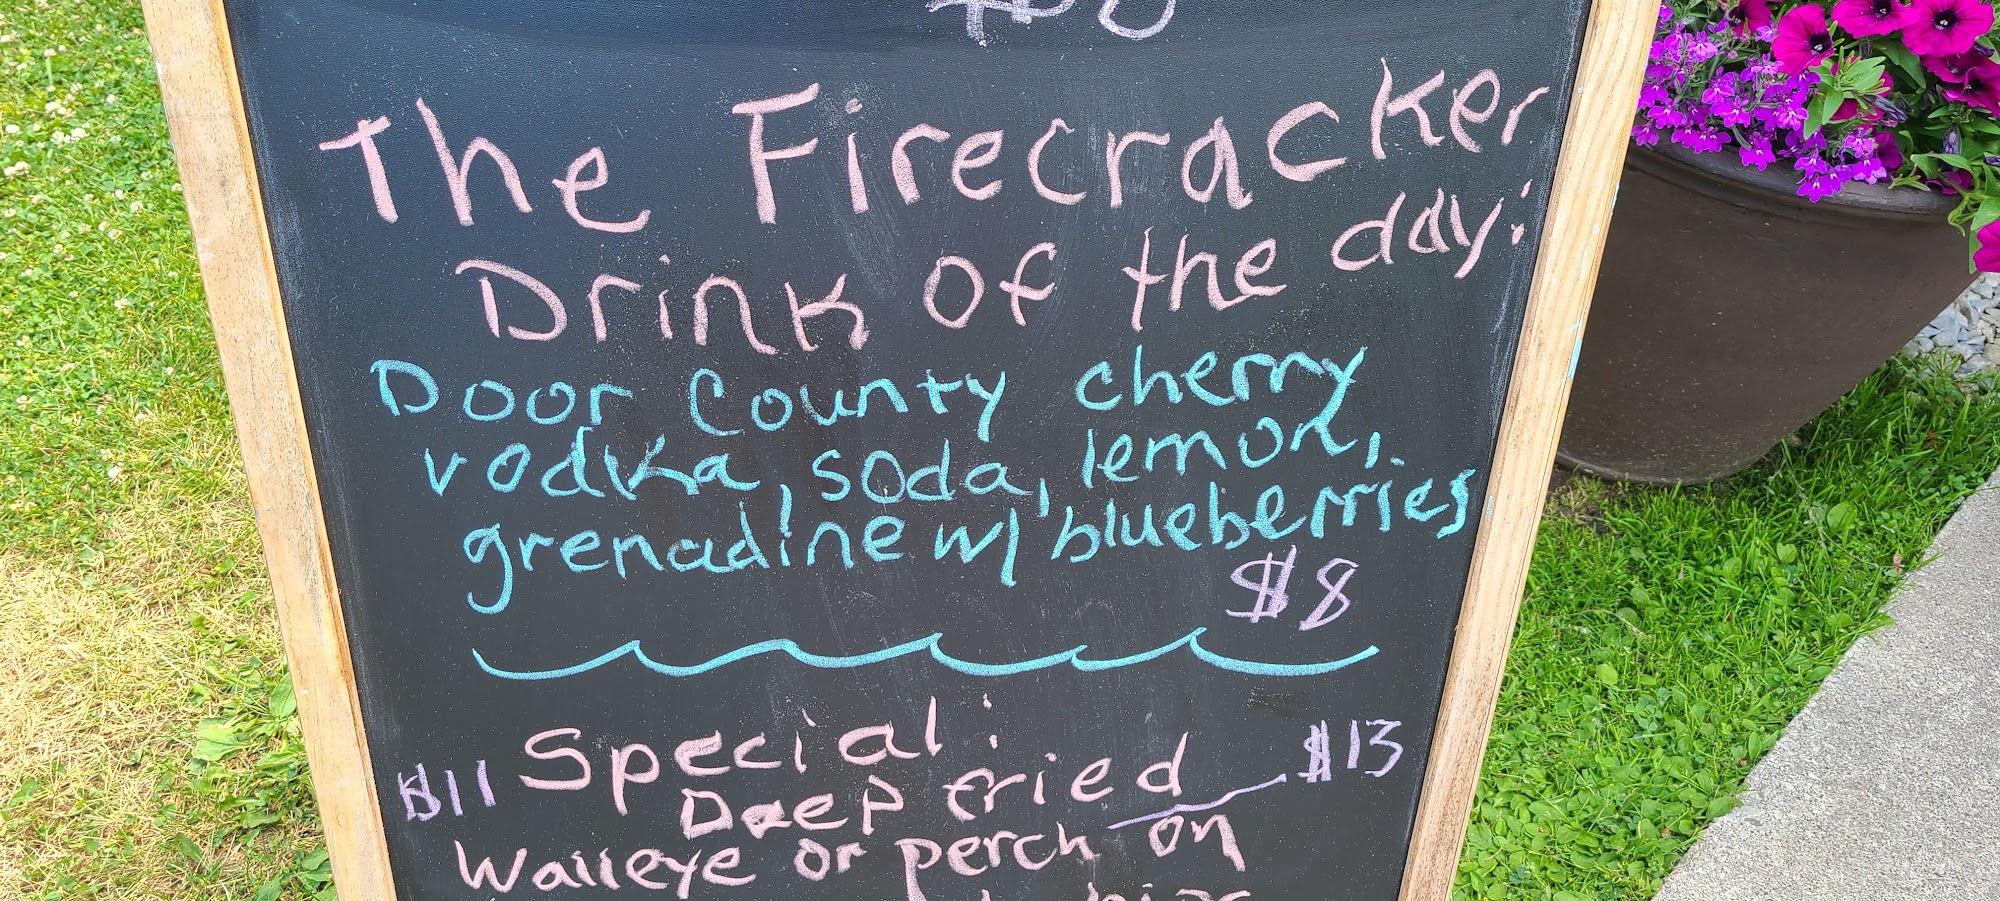 The Firecracker
Drink of the day:
Door County cherry
vodka, soda, lemon,
grenadine w/ blueberries
$8
Special:
$11
$13
Deep fried
Walleye or perch on